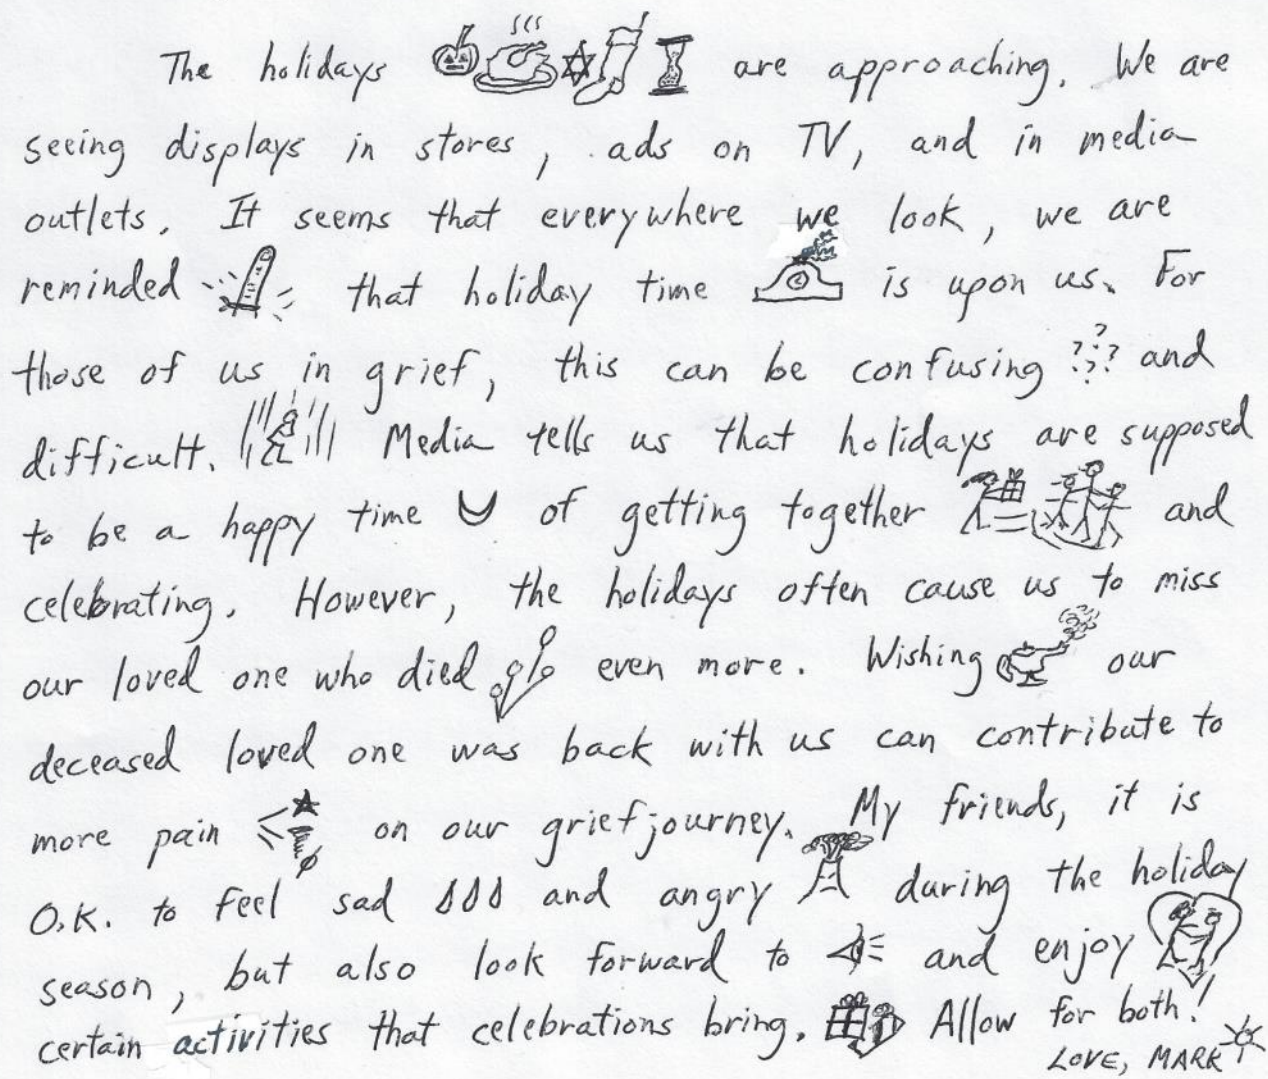 The holidays are approaching. We are
seeing displays in stores, ads on TV, and in media
outlets. It seems that everywhere we look, we are
reminded that holiday time is upon us. For
those of us in grief, this can be confusing ???? and
difficult. Media tells us that holidays are supposed
to be a happy time of getting together and
celebrating. However, the holidays often cause us to miss
our loved one who died even more. Wishing our
deceased loved one was back with us can contribute to
more pain on our grief journey. My friends, it is
O.K. to feel sad and angry during the holiday
season, but also look forward to and enjoy
certain activities that celebrations bring. Allow for both!
LOVE, MARK